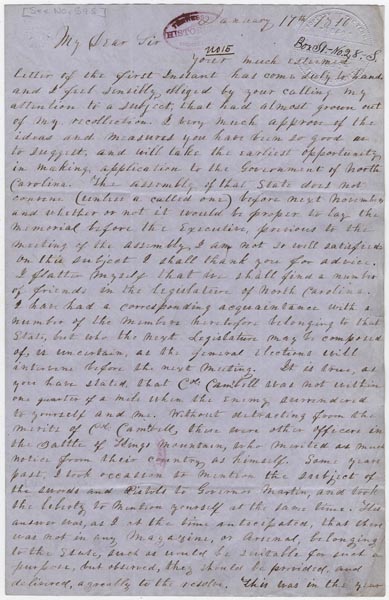 [See No. 595]
January 17th 1810
TENNESSEE
HISTORICAL
Box S1-No 28-S.
My Dear Sir
NOTE
Your much esteemed
letter of the first Instant has come duly to hand
and I feel sensibly obliged by your calling my
attention to a subject, that had almost grown out
of my recollection. I very much approve of the
ideas and measures you have been so good as
to suggest, and will take the earliest opportunity
in making application to the Government of North
Carolina. The assembly of that State does not
convene (unless a called one) before next November
and whether or not it would be proper to lay the
memorial before the Executive, previous to the
meeting of the assembly, I am not so will satisfied
on this subject I shall thank you for advice.
I flatter myself that we shall find a number
of friends in the legislature of North Carolina.
I have had a corresponding acquaintance with a
number of the Members heretofore belonging to that
State, but who the next Legislature may be composed
of, is uncertain, as the general elections will
intervene before the next Meeting. It is true, as
you have stated, that Col Cambell was not within
one quarter of a mile when the enemy surrendered
to yourself and me. Without detracting from the
merits of Col Cambell, there were other officers in
the Battle of Kings Mountain, who merited as much
notice from their country as himself. Some years
past, I took occasion to mention the subject of
the swords and Pistols to Governor Martin, and took
the liberty to mention yourself at the same time. His
answer was, as I at the time anticipated, that there
was not in any Magazine, or Arsenal, belonging
to the State, such as would be suitable for such a
purpose, but observed, they should be provided, and
delivered, agreeably to the resolve. This was in the year